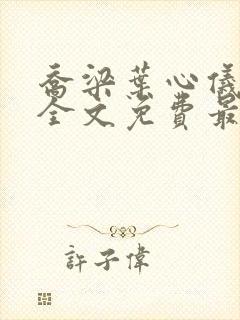 喬梁葉心儀
全文免費最
許子偉